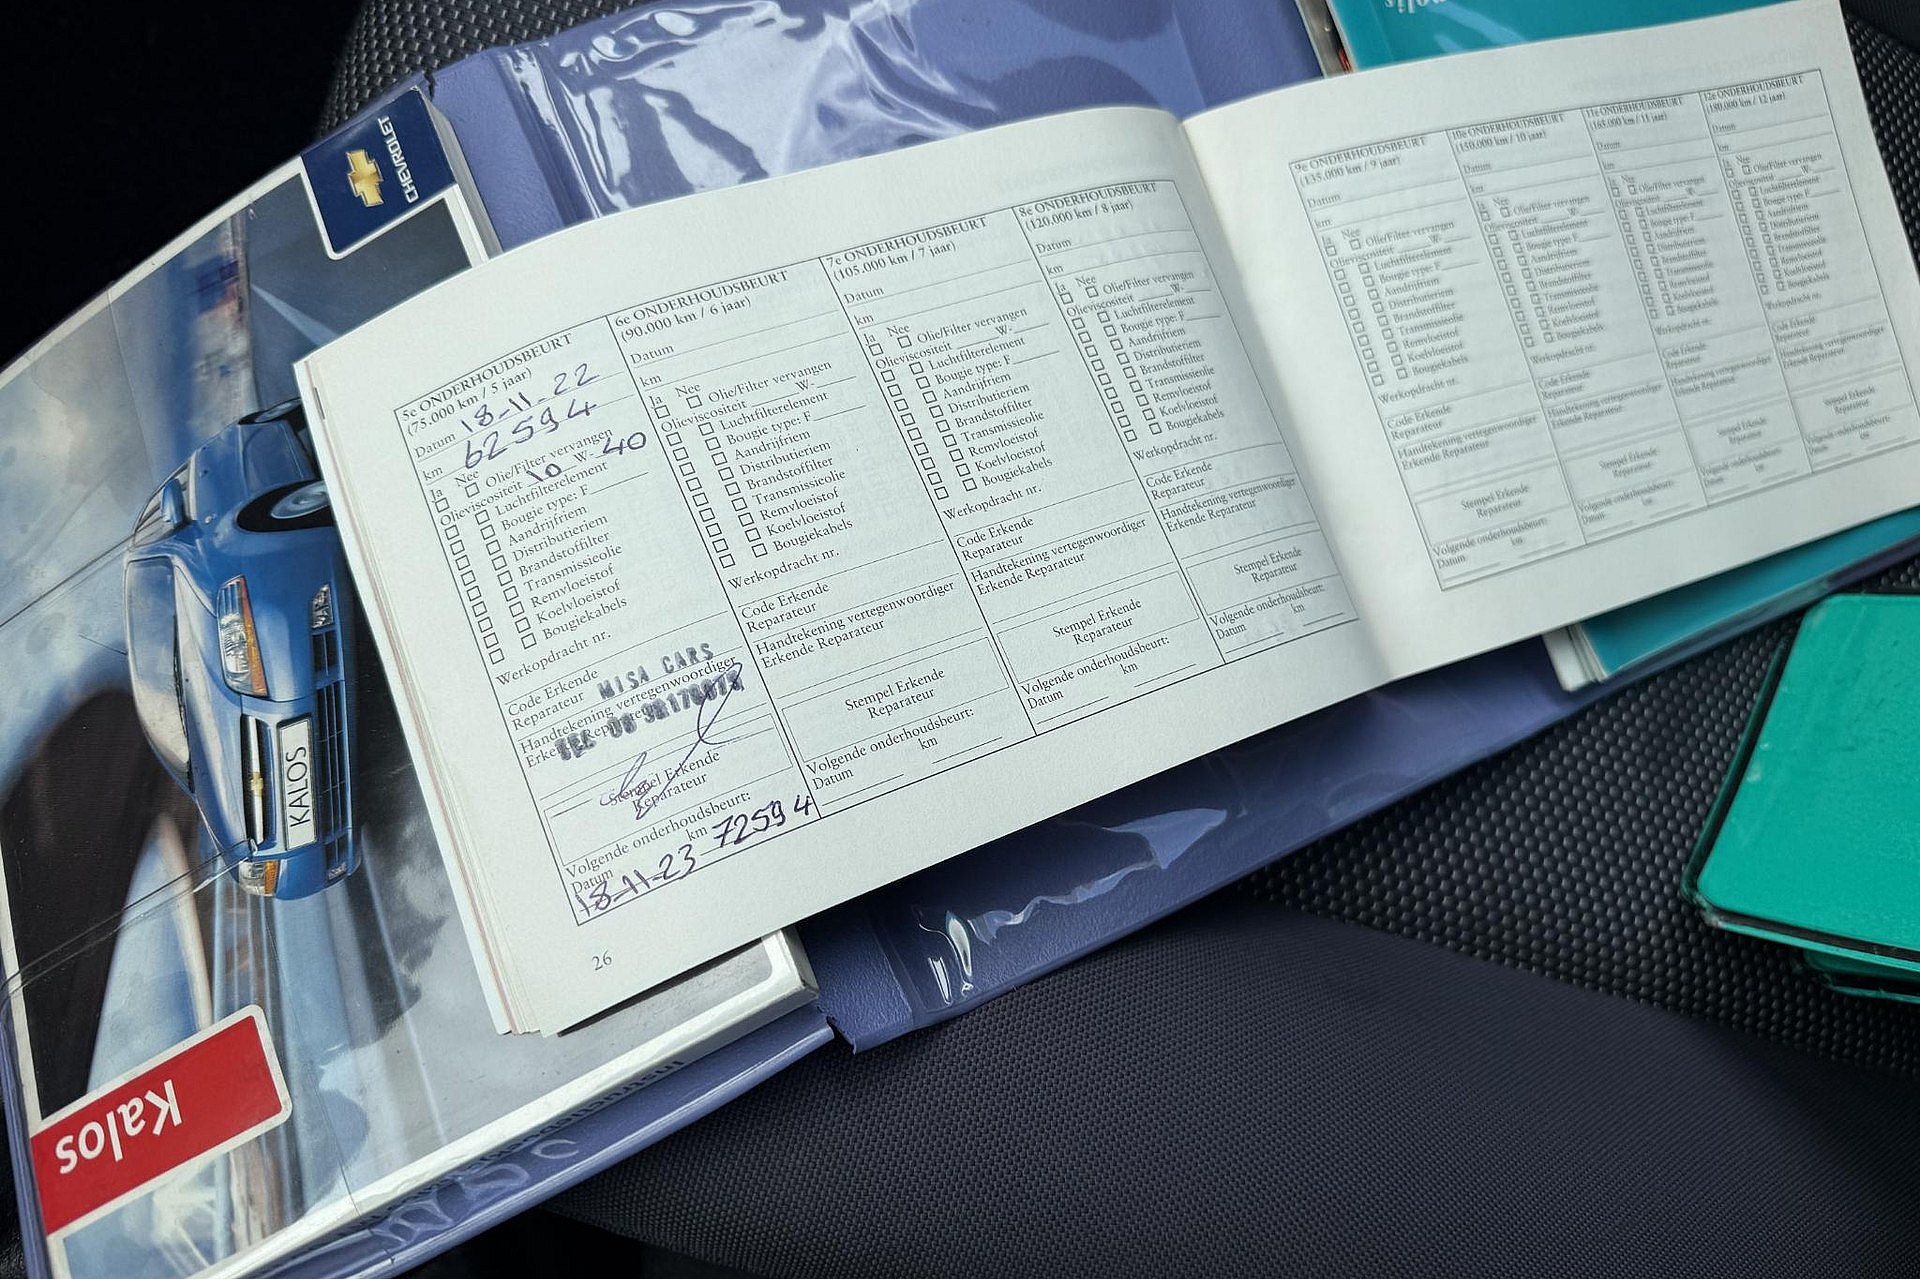 CHEVROLET
KALOS
Kalos
5e ONDERHOUDSBEURT
(75.000 km / 5 jaar)
Datum 18-11-22
km 62594
Ja Nee
Olie/Filter vervangen
Olieviscositeit 10 W- 40
Luchtfilterelement
Bougie type: F
Aandrijfriem
Distributieriem
Brandstoffilter
Transmissieolie
Remvloeistof
Koelvloeistof
Bougiekabels
Werkopdracht nr.
Code Erkende
Reparateur
MISA CARS
Handtekening vertegenwoordiger
Erkende Reparateur
Stempel Erkende
Reparateur
Volgende onderhoudsbeurt:
Datum km
18-11-23 72594
26
6e ONDERHOUDSBEURT
(90.000 km / 6 jaar)
Datum
km
Ja Nee
Olie/Filter vervangen
Olieviscositeit W-
Luchtfilterelement
Bougie type: F
Aandrijfriem
Distributieriem
Brandstoffilter
Transmissieolie
Remvloeistof
Koelvloeistof
Bougiekabels
Werkopdracht nr.
Code Erkende
Reparateur
Handtekening vertegenwoordiger
Erkende Reparateur
Stempel Erkende
Reparateur
Volgende onderhoudsbeurt:
Datum km
7e ONDERHOUDSBEURT
(105.000 km / 7 jaar)
Datum
km
Ja Nee
Olie/Filter vervangen
Olieviscositeit W-
Luchtfilterelement
Bougie type: F
Aandrijfriem
Distributieriem
Brandstoffilter
Transmissieolie
Remvloeistof
Koelvloeistof
Bougiekabels
Werkopdracht nr.
Code Erkende
Reparateur
Handtekening vertegenwoordiger
Erkende Reparateur
Stempel Erkende
Reparateur
Volgende onderhoudsbeurt:
Datum km
8e ONDERHOUDSBEURT
(120.000 km / 8 jaar)
Datum
km
Ja Nee
Olie/Filter vervangen
Olieviscositeit W-
Luchtfilterelement
Bougie type: F
Aandrijfriem
Distributieriem
Brandstoffilter
Transmissieolie
Remvloeistof
Koelvloeistof
Bougiekabels
Werkopdracht nr.
Code Erkende
Reparateur
Handtekening vertegenwoordiger
Erkende Reparateur
Stempel Erkende
Reparateur
Volgende onderhoudsbeurt:
Datum km
9e ONDERHOUDSBEURT
(135.000 km / 9 jaar)
Datum
km
Ja Nee
Olie/Filter vervangen
Olieviscositeit W-
Luchtfilterelement
Bougie type: F
Aandrijfriem
Distributieriem
Brandstoffilter
Transmissieolie
Remvloeistof
Koelvloeistof
Bougiekabels
Werkopdracht nr.
Code Erkende
Reparateur
Handtekening vertegenwoordiger
Erkende Reparateur
Stempel Erkende
Reparateur
Volgende onderhoudsbeurt:
Datum km
10e ONDERHOUDSBEURT
(150.000 km / 10 jaar)
Datum
km
Ja Nee
Olie/Filter vervangen
Olieviscositeit W-
Luchtfilterelement
Bougie type: F
Aandrijfriem
Distributieriem
Brandstoffilter
Transmissieolie
Remvloeistof
Koelvloeistof
Bougiekabels
Werkopdracht nr.
Code Erkende
Reparateur
Handtekening vertegenwoordiger
Erkende Reparateur
Stempel Erkende
Reparateur
Volgende onderhoudsbeurt:
Datum km
11e ONDERHOUDSBEURT
(165.000 km / 11 jaar)
Datum
km
Ja Nee
Olie/Filter vervangen
Olieviscositeit W-
Luchtfilterelement
Bougie type: F
Aandrijfriem
Distributieriem
Brandstoffilter
Transmissieolie
Remvloeistof
Koelvloeistof
Bougiekabels
Werkopdracht nr.
Code Erkende
Reparateur
Handtekening vertegenwoordiger
Erkende Reparateur
Stempel Erkende
Reparateur
Volgende onderhoudsbeurt:
Datum km
12e ONDERHOUDSBEURT
(180.000 km / 12 jaar)
Datum
km
Ja Nee
Olie/Filter vervangen
Olieviscositeit W-
Luchtfilterelement
Bougie type: F
Aandrijfriem
Distributieriem
Brandstoffilter
Transmissieolie
Remvloeistof
Koelvloeistof
Bougiekabels
Werkopdracht nr.
Code Erkende
Reparateur
Handtekening vertegenwoordiger
Erkende Reparateur
Stempel Erkende
Reparateur
Volgende onderhoudsbeurt:
Datum km